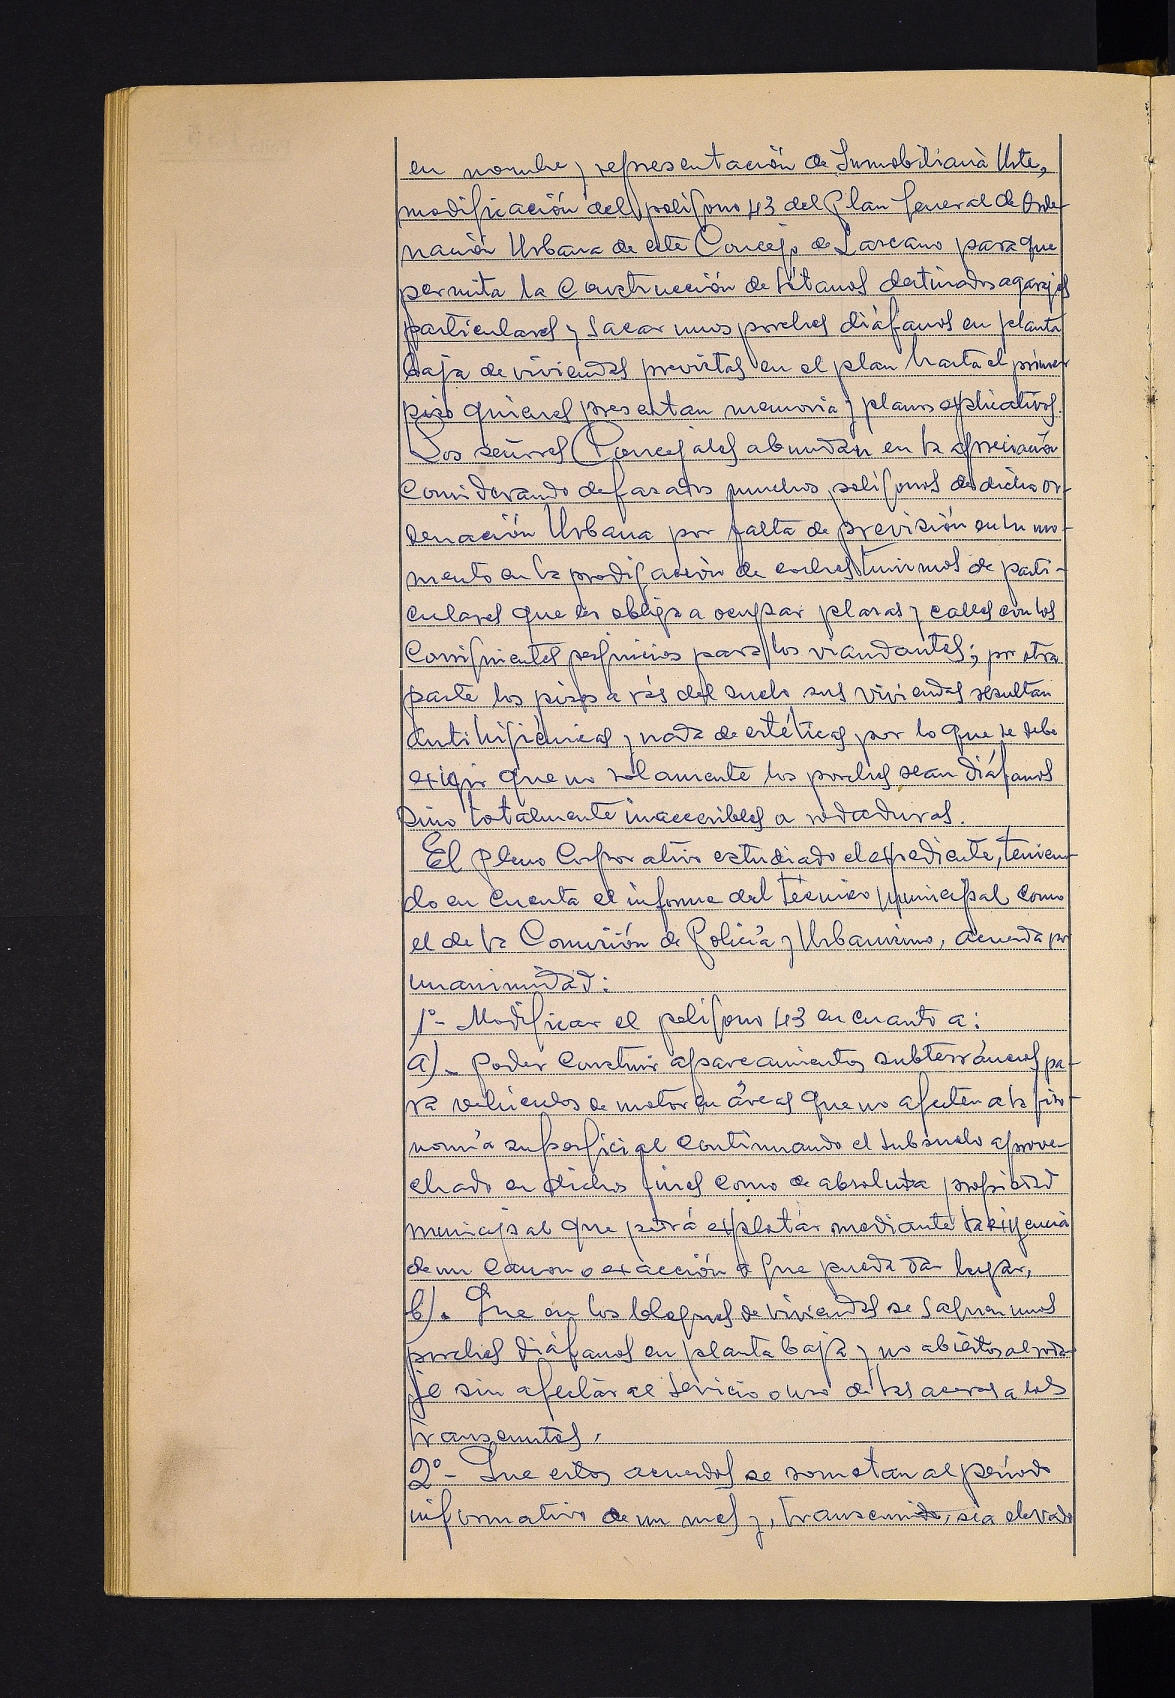 en nombre y representación de Inmobiliaria Urte,
modificación del polígono 43 del Plan General de Orde-
nación Urbana de este Concejo de Lazcano para que
permita la construcción de sótanos destinados a garajes
particulares y sacar unos porches diáfanos en planta
baja de viviendas previstas en el plan hasta el primer
piso quienes presentan memoria y planos explicativos.
Los señores Concejales abundan en la apreciación
considerando defasados muchos polígonos de dicha or-
denación Urbana por falta de previsión en su mo-
mento en la prodigación de coches turismos de parti-
culares que les obliga a ocupar plazas y calles con los
consiguientes perjuicios para los viandantes; por otra
parte los pisos a rás del suelo sus viviendas resultan
antihigiénicas y nada de estéticas por lo que se debe
exigir que no solamente los porches sean diáfanos
sino totalmente inaccesibles a rodaduras.
El Pleno Corporativo estudiado el expediente, tenien-
do en cuenta el informe del técnico municipal como
el de la Comisión de Policía y Urbanismo, acuerda por
unanimidad:
1º- Modificar el polígono 43 en cuanto a:
a).- Poder construir aparcamientos subterráneos pa-
ra vehículos de motor en áreas que no afecten a la fiso-
nomía superficial continuando el subsuelo aprove-
chado en dichos fines como de absoluta propiedad
municipal que podrá explotar mediante la exigencia
de un canon o exacción a que pueda dar lugar,
b).- Que en los bloques de viviendas se saquen unos
porches diáfanos en planta baja y no abiertos al roda-
je sin afectar al servicio o uso de las aceras a los
transeuntes.
2º- Que estos acuerdos se sometan al período
informativo de un mes y, transcurrido, sea elevado